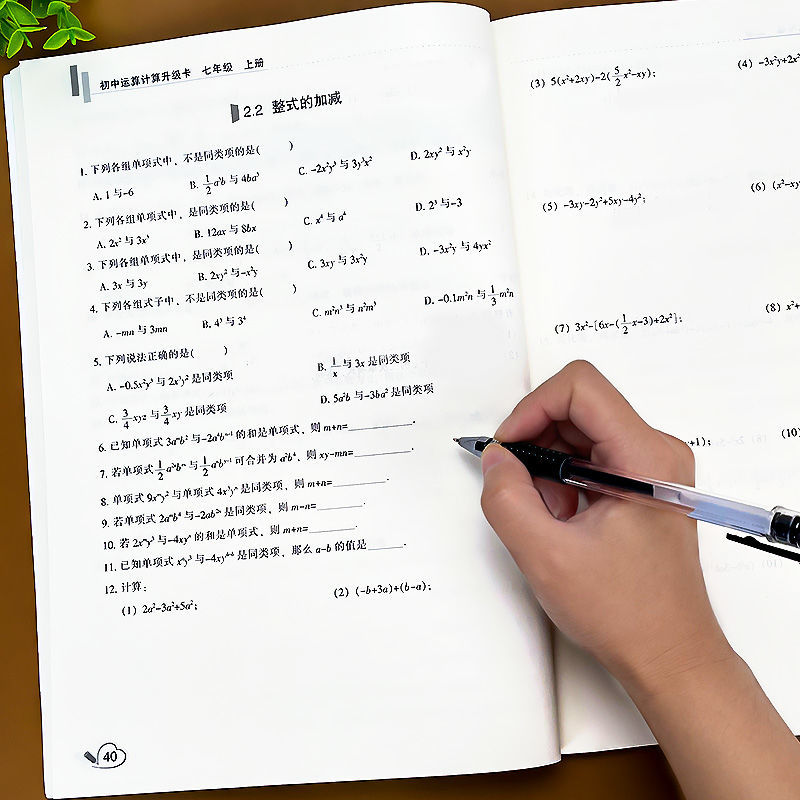 初中运算计算升级卡 七年级 上册
2.2 整式的加减
1. 下列各组单项式中，不是同类项的是( )
A. 1与-6 B. 1/2a³b与4ba³ C. -2x²y³与3y³x² D. 2xy²与x²y
2. 下列各组单项式中，是同类项的是( )
A. 2x²与3x³ B. 12ax与8bx C. x⁴与a⁴ D. 2³与-3
3. 下列各组单项式中，是同类项的是( )
A. 3x与3y B. 2xy²与-x²y C. 3xy与3x²y D. -3x²y与4yx²
4. 下列各组式子中，不是同类项的是( )
A. -mn与3mn B. 4³与3⁴ C. m²n³与n²m³ D. -0.1m²n与1/3m²n
5. 下列说法正确的是( )
A. -0.5x²y³与2x³y²是同类项 B. 1/x与3x是同类项
C. 3/4xyz与3/4xy是同类项 D. 5a²b与-3ba²是同类项
6. 已知单项式3aᵐb²与-2a⁴bⁿ⁻¹的和是单项式，则m+n=
7. 若单项式 可合并为a²b⁴，则xy-mn=
8. 单项式9xᵐy²与单项式4x³yⁿ是同类项，则m+n=
9. 若单项式2aᵐb⁴与-2ab²ⁿ是同类项，则m-n=
10. 若2xᵐy³与-4xyⁿ的和是单项式，则m+n=
11. 已知单项式 是同类项，那么a-b的值是
12. 计算：
(1) 2a²-3a²+5a²; (2) (-b+3a)+(b-a);
40
(3) 5(x²+2xy)-2(5/2x²-xy); (4) -3x²y+2x²
(5) -3xy-2y²+5xy-4y²; (6) (x²-xy
(7) 3x²-[6x-(1/2x-3)+2x²]; (8) x²+
y+1); (10)